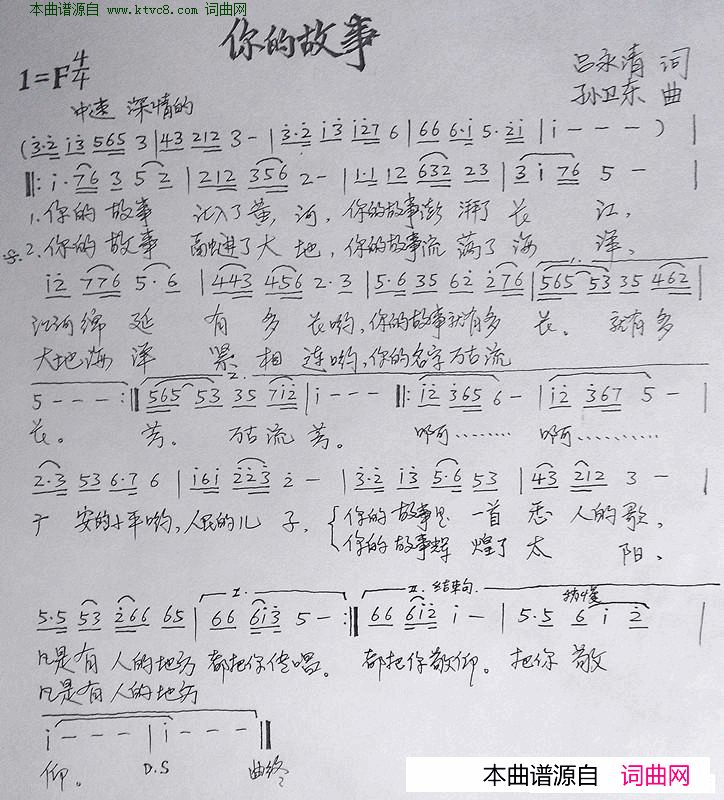 本曲谱源自 www.ktvc8.com 词曲网
你的故事
1=F 4/4
吕永清 词
孙卫东 曲
中速 深情的
(3·2 i3 565 3 | 43 212 3 - | 3·2 i3 i27 6 | 66 6·i 5·2i | i - - - ) |
‖: i·76 3 5 2 | 212 356 2 - | 1·1 12 632 23 | 3 i 76 5 - |
1.你的 故事 汇入了黄河,你的故事澎湃了 长 江,
2.你的 故事 融进了大 地,你的故事流荡了海 洋,
i2 776 5·6 | 443 456 2·3 | 5·6 35 62 276 | 565 53 35 462 |
江河绵 延 有 多 长哟,你的故事就有多 长。 就有多
大地海 洋 紧 相 连哟,你的名字万古流
5 - - - :‖ 565 53 35 712 | i - - - ‖: i2 365 6 - | i2 367 5 - |
长。 芳。 万古流 芳。 啊……… 啊…………
2·3 53 6·7 6 | i6i 223 2 - | 3·2 i3 5·6 53 | 43 212 3 - |
安的 哟,人民的儿 子, 你的 故事是 一首 人的歌,
你的 故事辉 煌了 太 阳,
I. II. 结束句
5·5 53 266 65 | 66 6i3 5 - :‖ 66 6i2 i - | 5·5 6 i 2 |
凡是有 人的地方 都把你传唱。 都把你敬仰。 把你 敬
凡是有 人的地方
i - - - | i - - - ‖
仰。 D.S 曲终
本曲谱源自 词曲网